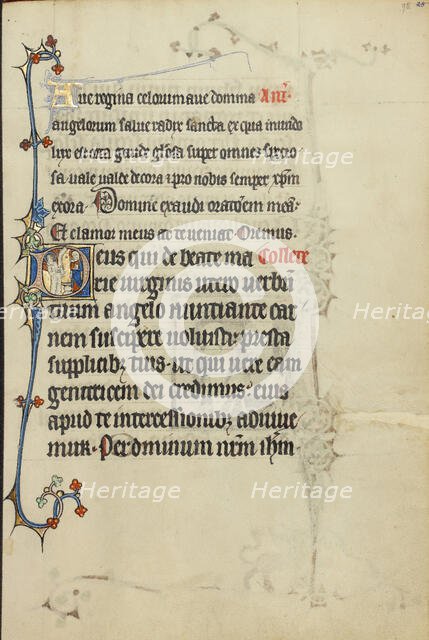 98 28
Ave regina celorum ave domina Ant̃
angelorum salve radix sancta ex qua mundo
lux est orta gaude gl̃osa super omnes speciosa
sa vale valde decora et pro nobis semper xp̃m
exora. Domine exaudi orationem mea:
Et clamor meus ad te veniat. Oremus.
Deus qui de beate ma Collecte
rie virginis utero verbũ
tuum angelo nuntiante car
nem suscipere voluisti: presta
supplicibz tuis. ut qui vere eam
genetricem dei credimus: eius
apud te intercessionibz adiuve
mur. Per dominum nrm ihm
Heritage
Heritage
Heritage
Heritage
Heritage
Heritage
Heritage